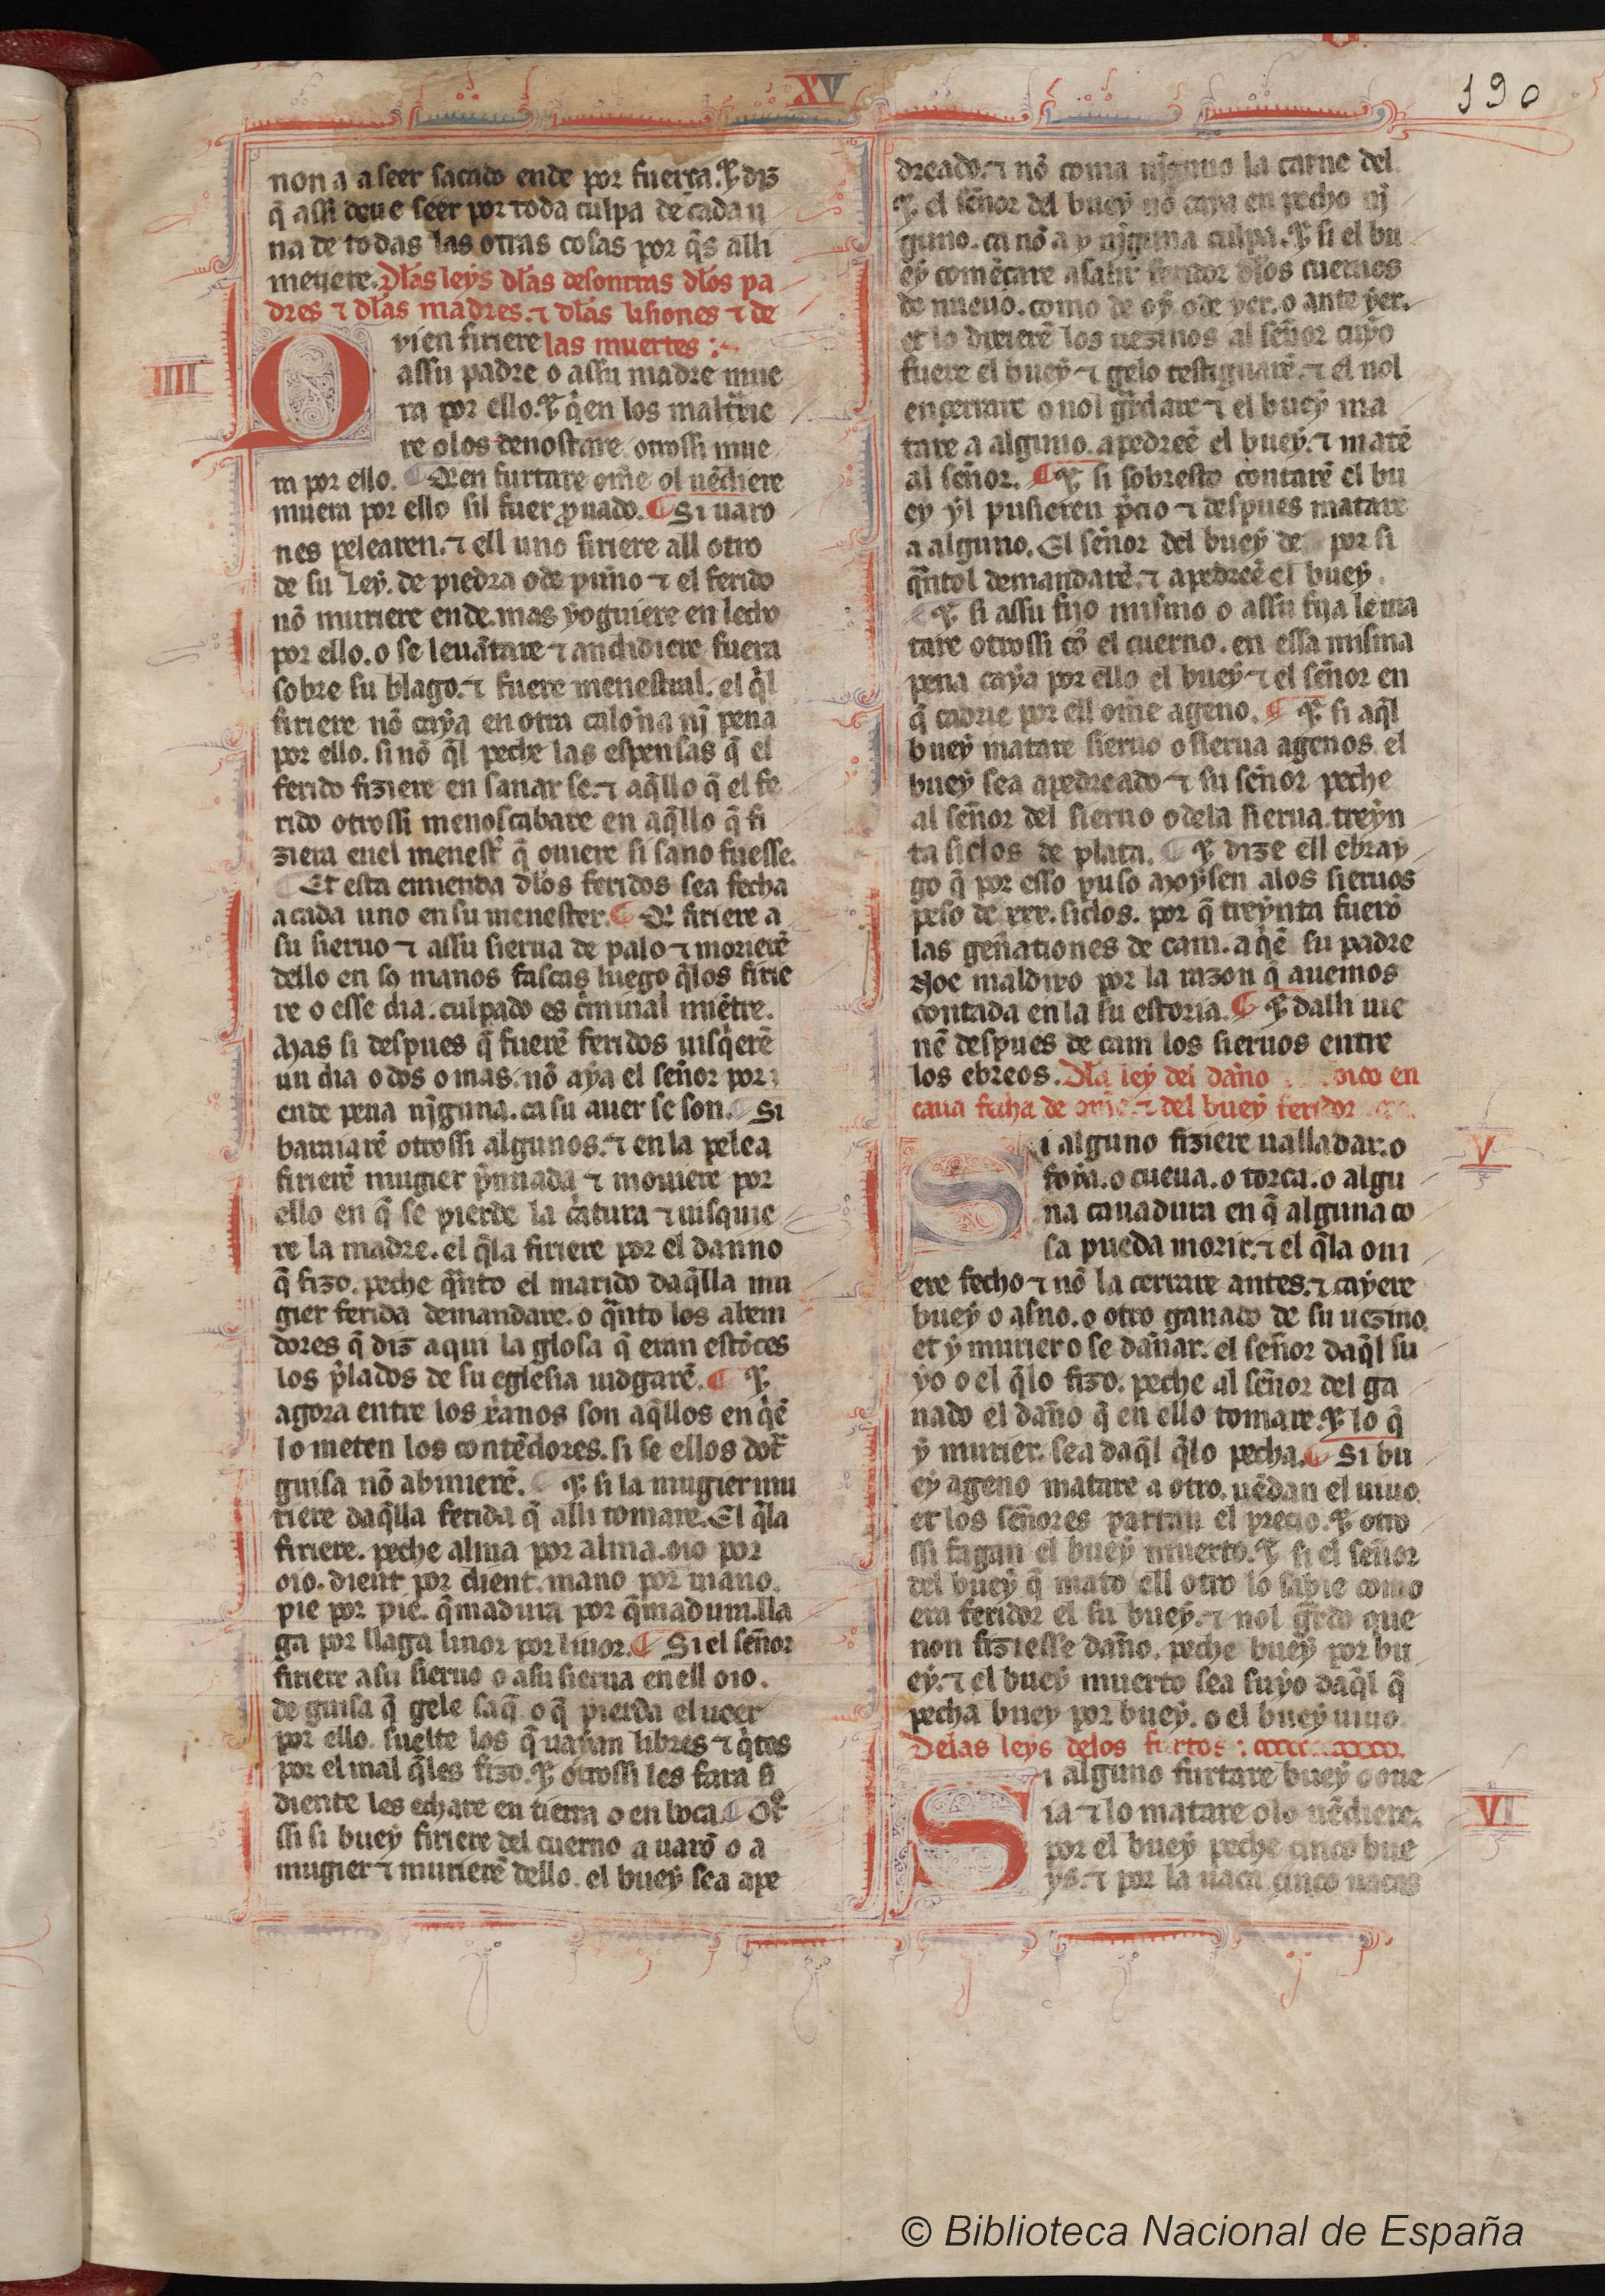 XV
190
non a a seer sacado ende por fuerça. ⁊ diz
q̃ assi deue seer por toda culpa de cada u
na de todas las otras cosas por q̃s alli
metiere. Dlas leys dlas desonrras dlos pa
dres ⁊ dlas madres. ⁊ dlas lisiones ⁊ de
las muertes :~
IIII
Quien firiere
assu padre o assu madre mue
ra por ello. ⁊ q̃en los maltrxie
re o los denostare. otrossi mue
ra por ello. ¶ Qien furtare om̃e ol uẽdiere
muera por ello sil fuer p̃uado. ¶ Si uaro
nes pelearen. ⁊ ell uno firiere all otro
de su Ley. de piedra o de punno ⁊ el ferido
nõ muriere ende. mas yoguiere en lecho
por ello. o se leuãtare ⁊ andidiere fuera
sobre su blago. ⁊ fuere menestral. el q̃l
firiere nõ caya en otra calonna nĩ pena
por ello. si nõ q̃l peche las espensas q̃ el
ferido fiziere en sanar se. ⁊ aq̃llo q̃ el fe
rido otrossi menoscabare en aq̃llo q̃ fi
ziera enel menest̃ q̃ ouiere si sano fuesse.
¶ Et esta emienda dlos feridos sea fecha
a cada uno en su menester. ¶ Qi firiere a
su sieruo ⁊ assu sierua de palo ⁊ morierẽ
dello en so manos fascas luego q̃los firie
re o esse dia. culpado es c̃minal miẽtre.
Mas si despues q̃ fuerẽ feridos uisq̃erẽ
un dia o dos o mas. nõ aya el sennor por
ende pena nĩguna. ca su auer se son. ¶ Si
baraiarẽ otrossi algunos. ⁊ en la pelea
firierẽ mugier p̃nnada ⁊ mouiere por
ello en q̃ se pierde la c̃atura ⁊ uisquie
re la madre. el q̃la firiere por el danno
q̃ fizo. peche q̃nto el marido daq̃lla mu
gier ferida demandare. o q̃nto los aluem
dores q̃ diz aqui la glosa q̃ eran estõces
los p̃lados de su eglesia iudgarẽ. ¶ ⁊
agora entre los x̃anos son aq̃llos en q̃ẽ
lo meten los contẽdores. si se ellos dot̃
guisa nõ abinierẽ. ¶ ⁊ si la mugier mu
riere daq̃lla ferida q̃ alli tomare. El q̃la
firiere. peche alma por alma. oio por
oio. dient por dient. mano por mano.
pie por pie. q̃madura por q̃madura. lla
ga por llaga liuor por liuor. ¶ Si el sẽnor
firiere a su sieruo o a su sierua en ell oio.
de guisa q̃ gele saq̃ o q̃ pierda el ueer
por ello. suelte los q̃ uayan libres ⁊ q̃tos
por el mal q̃les fizo. ⁊ otrossi les fara si
diente les echare en tierra o en boca. ¶ Ot̃
ssi si buey firiere del cuerno a uarõ o a
mugier ⁊ murierẽ dello. el buey sea ape
dreado. ⁊ nõ coma nĩguno la carne del.
⁊ el sẽnor del buey nõ caya en pecho nĩ
guno. ca nõ a y nĩguna culpa. ⁊ si el bu
ey comẽçare a salir feridor dlos cuernos
de nueuo. como de oy o de yer. o ante yer.
et lo dixierẽ los uezinos al sẽnor cuyo
fuere el buey ⁊ gelo testiguarẽ. ⁊ el nol
encerrare o nol guardare ⁊ el buey ma
tare a alguno. apedreẽ el buey. ⁊ matẽ
al sẽnor. ¶ ⁊ si sobresto contarẽ el bu
ey yl pusieren p̃cio ⁊ despues matare
a alguno. El sẽnor del buey de por si
q̃ntol demandarẽ. ⁊ apedreẽ el buey.
¶ ⁊ si assu fijo mismo o assu fija le ma
tare otrossi cõ el cuerno. en essa misma
pena caya por ello el buey ⁊ el sẽnor en
q̃ cadrie por ell ome ageno. ¶ ⁊ si aq̃l
buey matare sieruo o sierua agenos. el
buey sea apedreado ⁊ su sẽnor peche
al sẽnor del sieruo o dela sierua. treyn
ta siclos de plata. ¶ ⁊ dize ell ebray
go q̃ por esso puso Moysen alos sieruos
peso de xxx. siclos. por q̃ treynta fuerõ
las geñationes de cam. a q̃ẽ su padre
Noe maldixo por la razon q̃ auemos
contada en la su estoria. ¶ ⁊ dalli uie
nẽ despues de cam los sieruos entre
los ebreos. Dla ley del danno en
caua fecha de ⁊ del buey feridor
V
Si alguno fiziere ualladar. o
foya. o cueua. o torca. o algu
na cauadura en q̃ alguna co
sa pueda morir. ⁊ el q̃la oui
ere fecho ⁊ nõ la cerrare antes. ⁊ cayere
buey o asno. o otro ganado de su uezino.
et y muriere o se dannar. el sẽnor daq̃l su
yo o el q̃lo fizo. peche al sẽnor del ga
nado el danno q̃ en ello tomare. ⁊ lo q̃
y murier. sea daq̃l q̃lo pecha. ¶ Si bu
ey ageno matare a otro. uẽdan el uiuo.
et los sẽnores partan el precio. ⁊ otro
ssi fagan el buey muerto. ⁊ si el sẽnor
del buey q̃ mato ell otro lo sabie como
era feridor el su buey. ⁊ nol g̃rdo que
non fiziesse danno. peche buey por bu
ey. ⁊ el buey muerto sea suyo daq̃l q̃
pecha buey por buey. o el buey uiuo.
Delas leys delos furtos :
VI
Si alguno furtare buey o oue
ia ⁊ lo matare o lo uẽdiere.
por el buey peche cinco bue
ys. ⁊ por la uaca cinco uacas
© Biblioteca Nacional de España